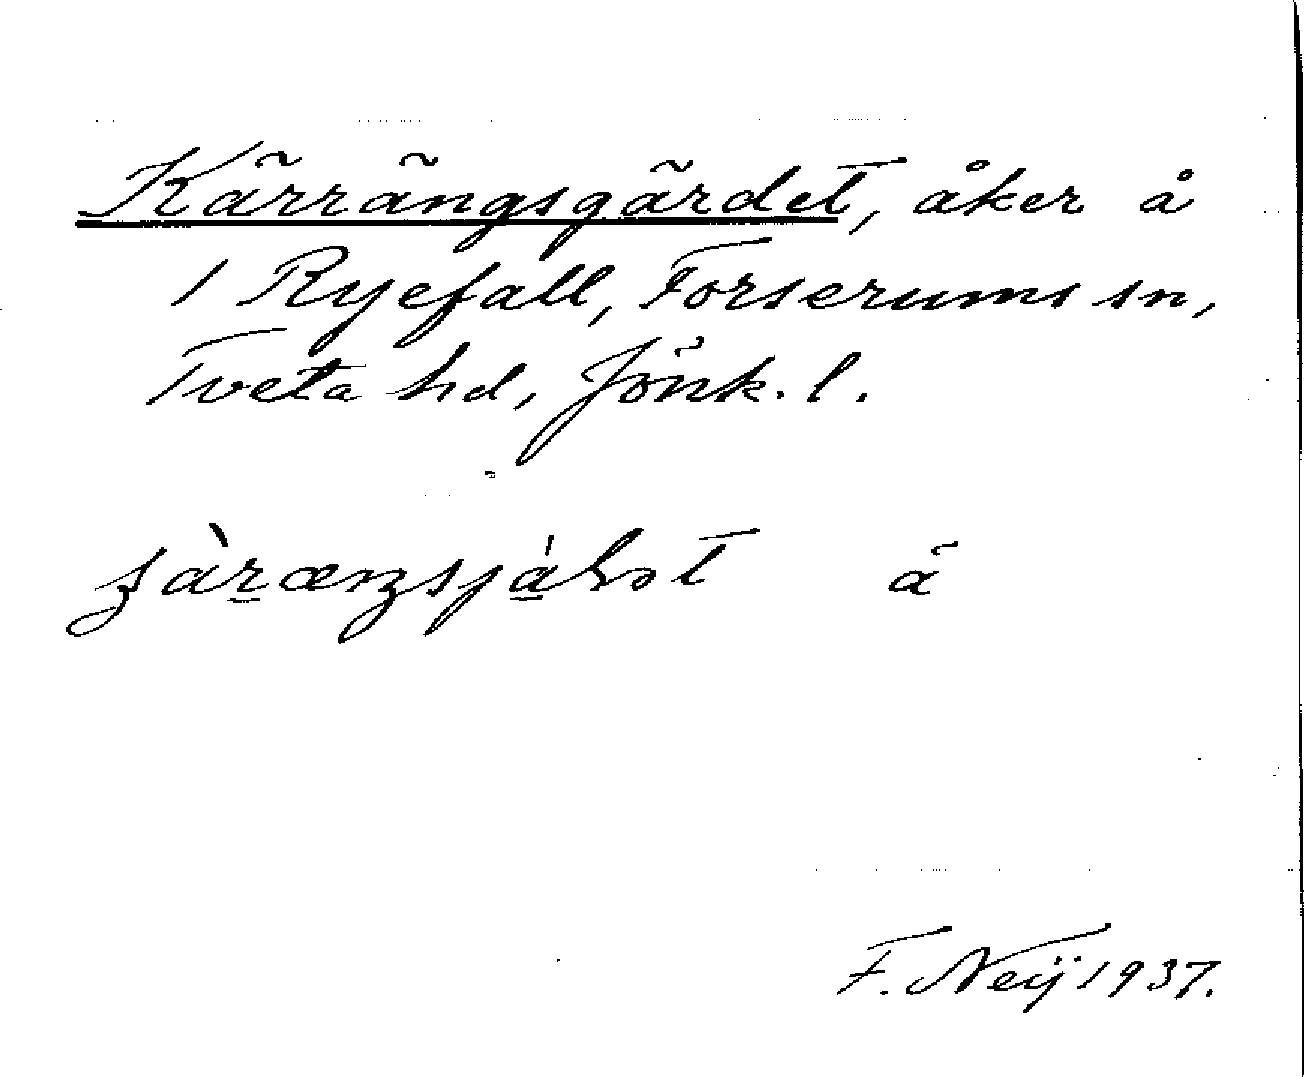 Kärrängsgärdet, åker å
1 Ryefall, Forserums sn,
Tveta hd, Jönk. l.
å
F. Neij 1937.